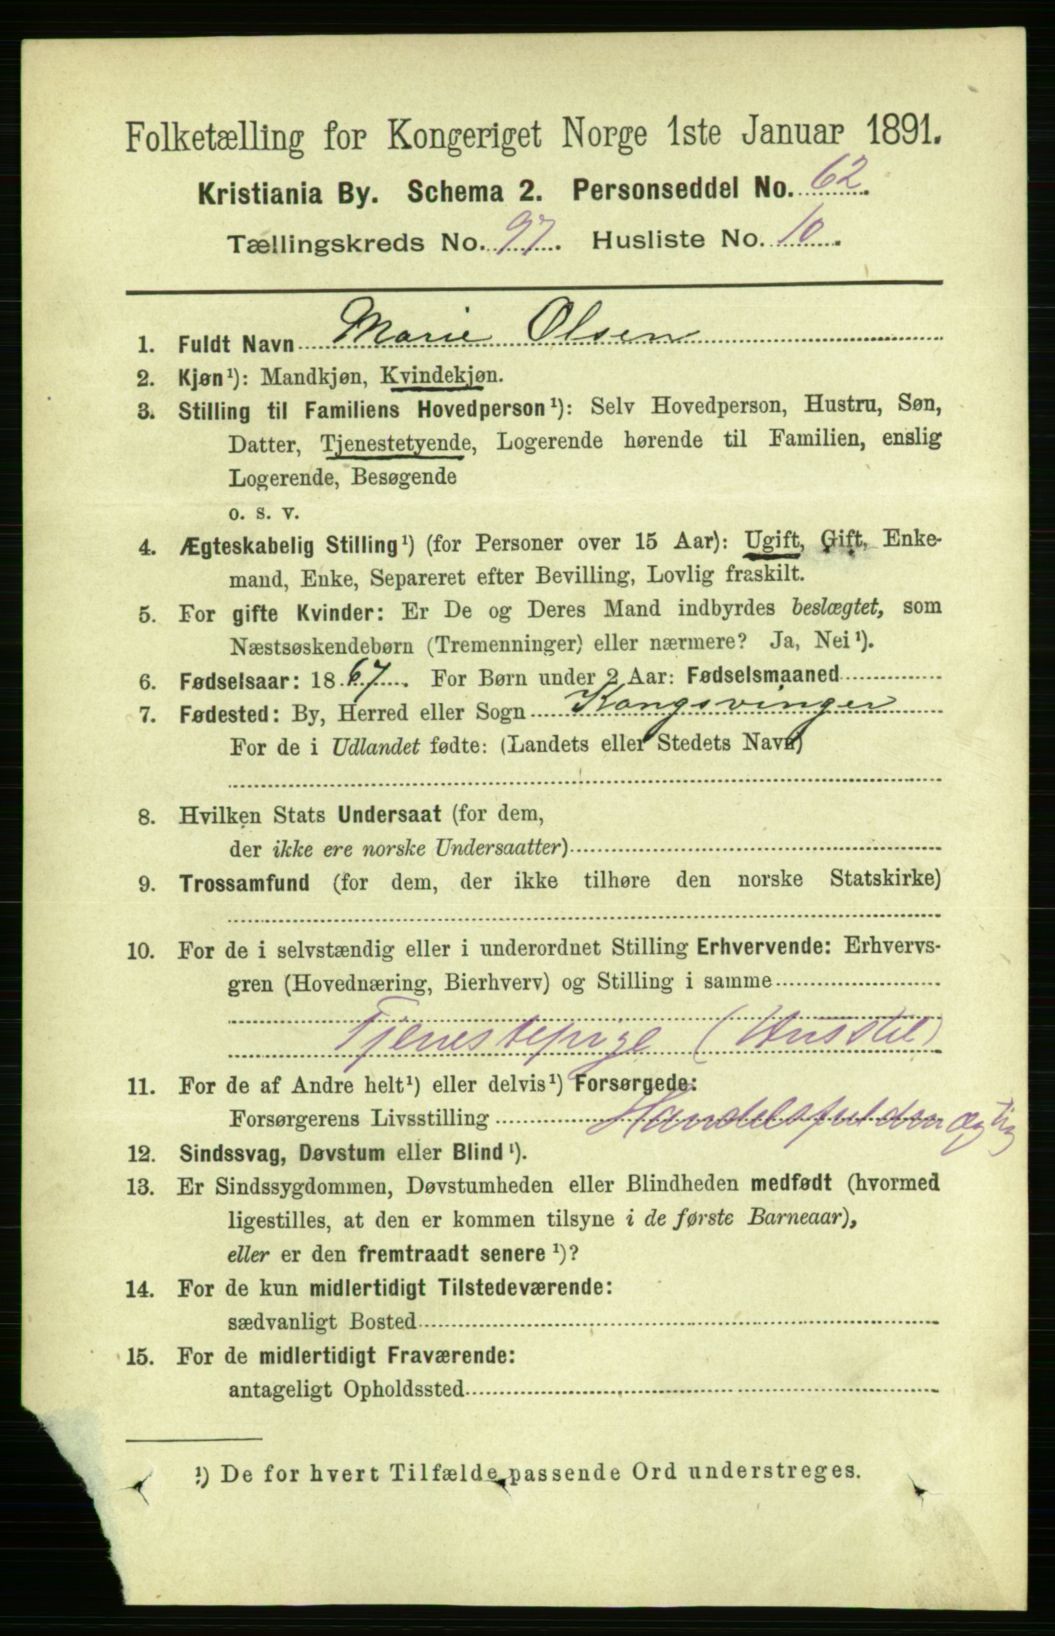 Folketælling for Kongeriget Norge 1ste Januar 1891.
Kristiania By. Schema 2. Personseddel No. 62.
Tællingskreds No. 97. Husliste No. 10.
1. Fuldt Navn Marie Olsen
2. Kjøn¹): Mandkjøn, Kvindekjøn.
3. Stilling til Familiens Hovedperson¹): Selv Hovedperson, Hustru, Søn,
Datter, Tjenestetyende, Logerende hørende til Familien, enslig
Logerende, Besøgende
o. s. v.
4. Ægteskabelig Stilling¹) (for Personer over 15 Aar): Ugift, Gift, Enke-
mand, Enke, Separeret efter Bevilling, Lovlig fraskilt.
5. For gifte Kvinder: Er De og Deres Mand indbyrdes beslægtet, som
Næstsøskendebørn (Tremenninger) eller nærmere? Ja, Nei¹).
6. Fødselsaar: 1867. For Børn under 2 Aar: Fødselsmaaned
7. Fødested: By, Herred eller Sogn Kongsvinger
For de i Udlandet fødte: (Landets eller Stedets Navn)
8. Hvilken Stats Undersaat (for dem,
der ikke ere norske Undersaatter)
9. Trossamfund (for dem, der ikke tilhøre den norske Statskirke)
10. For de i selvstændig eller i underordnet Stilling Erhvervende: Erhvervs-
gren (Hovednæring, Bierhverv) og Stilling i samme
Tjenestepige (Husstel)
11. For de af Andre helt¹) eller delvis¹) Forsørgede:
Forsørgerens Livsstilling Handelsfuldmægtig
12. Sindssvag, Døvstum eller Blind¹).
13. Er Sindssygdommen, Døvstumheden eller Blindheden medfødt (hvormed
ligestilles, at den er kommen tilsyne i de første Barneaar),
eller er den fremtraadt senere¹)?
14. For de kun midlertidigt Tilstedeværende:
sædvanligt Bosted
15. For de midlertidigt Fraværende:
antageligt Opholdssted
¹) De for hvert Tilfælde passende Ord understreges.